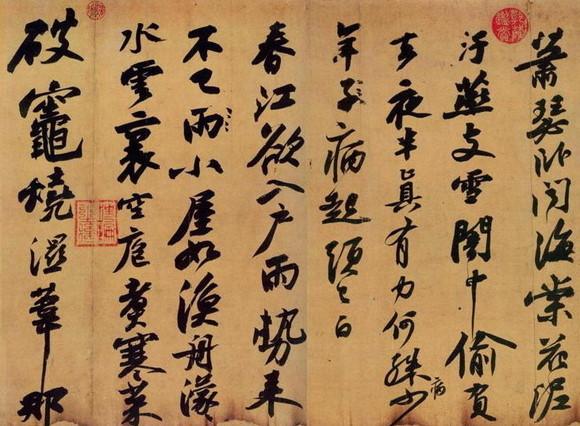 蕭瑟卧聞海棠花泥
汙燕支雪闇中偷負
去夜半真有力何殊少
病
年子病起頭已白
春江欲入户雨勢来
不已雨小屋如漁舟濛
水雲裏空庖煑寒菜
破竈燒濕葦那